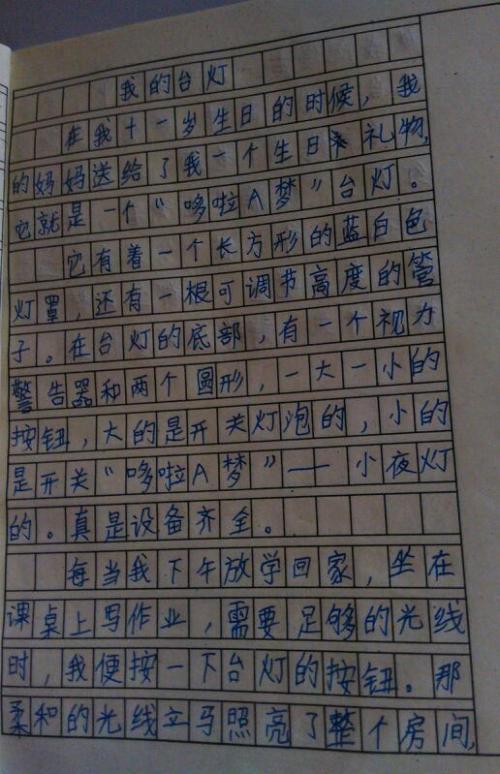 我的台灯
在我十一岁生日的时候，我
的妈妈送给了我一个生日礼物，
它就是一个“哆啦A梦”台灯。
它有着一个长方形的蓝白色
灯罩，还有一根可调节高度的管
子。在台灯的底部，有一个视力
警告器和两个圆形，一大一小的
按钮，大的是开关灯泡的，小的
是开关“哆啦A梦”——小夜灯
的。真是设备齐全。
每当我下午放学回家，坐在
课桌上写作业，需要足够的光线
时，我便按一下台灯的按钮。那
柔和的光线立马照亮了整个房间，